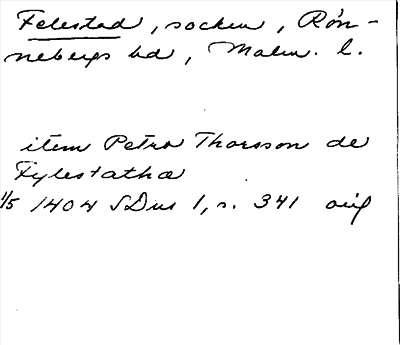 Felestad, socken, Røn-
nebergs hd, Malm. l.
item Petro Thorsson de
Fylestatha
1/5 1404 SDns 1, s. 341 orig